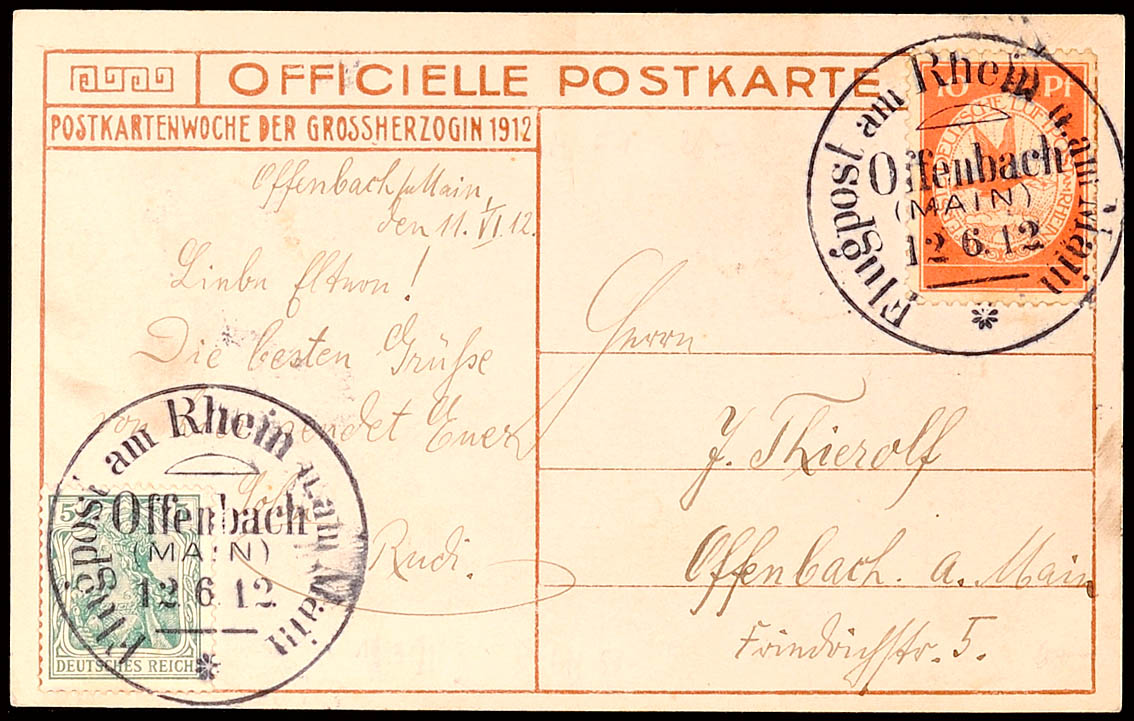 OFFICIELLE POSTKARTE
POSTKARTENWOCHE DER GROSSHERZOGIN 1912
Offenbach a/Main,
den 11. VI. 12.
Liebe Eltern!
Die besten Grüße
sendet Euer
Rudi.
10 Pf
DEUTSCHE LUFTPOST AM RHEIN
Flugpost am Rhein u. am Main
Offenbach
(MAIN)
12 6. 12
Herrn
J. Thierolf
Offenbach a. Main
Friedrichstr. 5.
5 5
DEUTSCHES REICH
Flugpost am Rhein u. am Main
Offenbach
(MAIN)
12 6 12